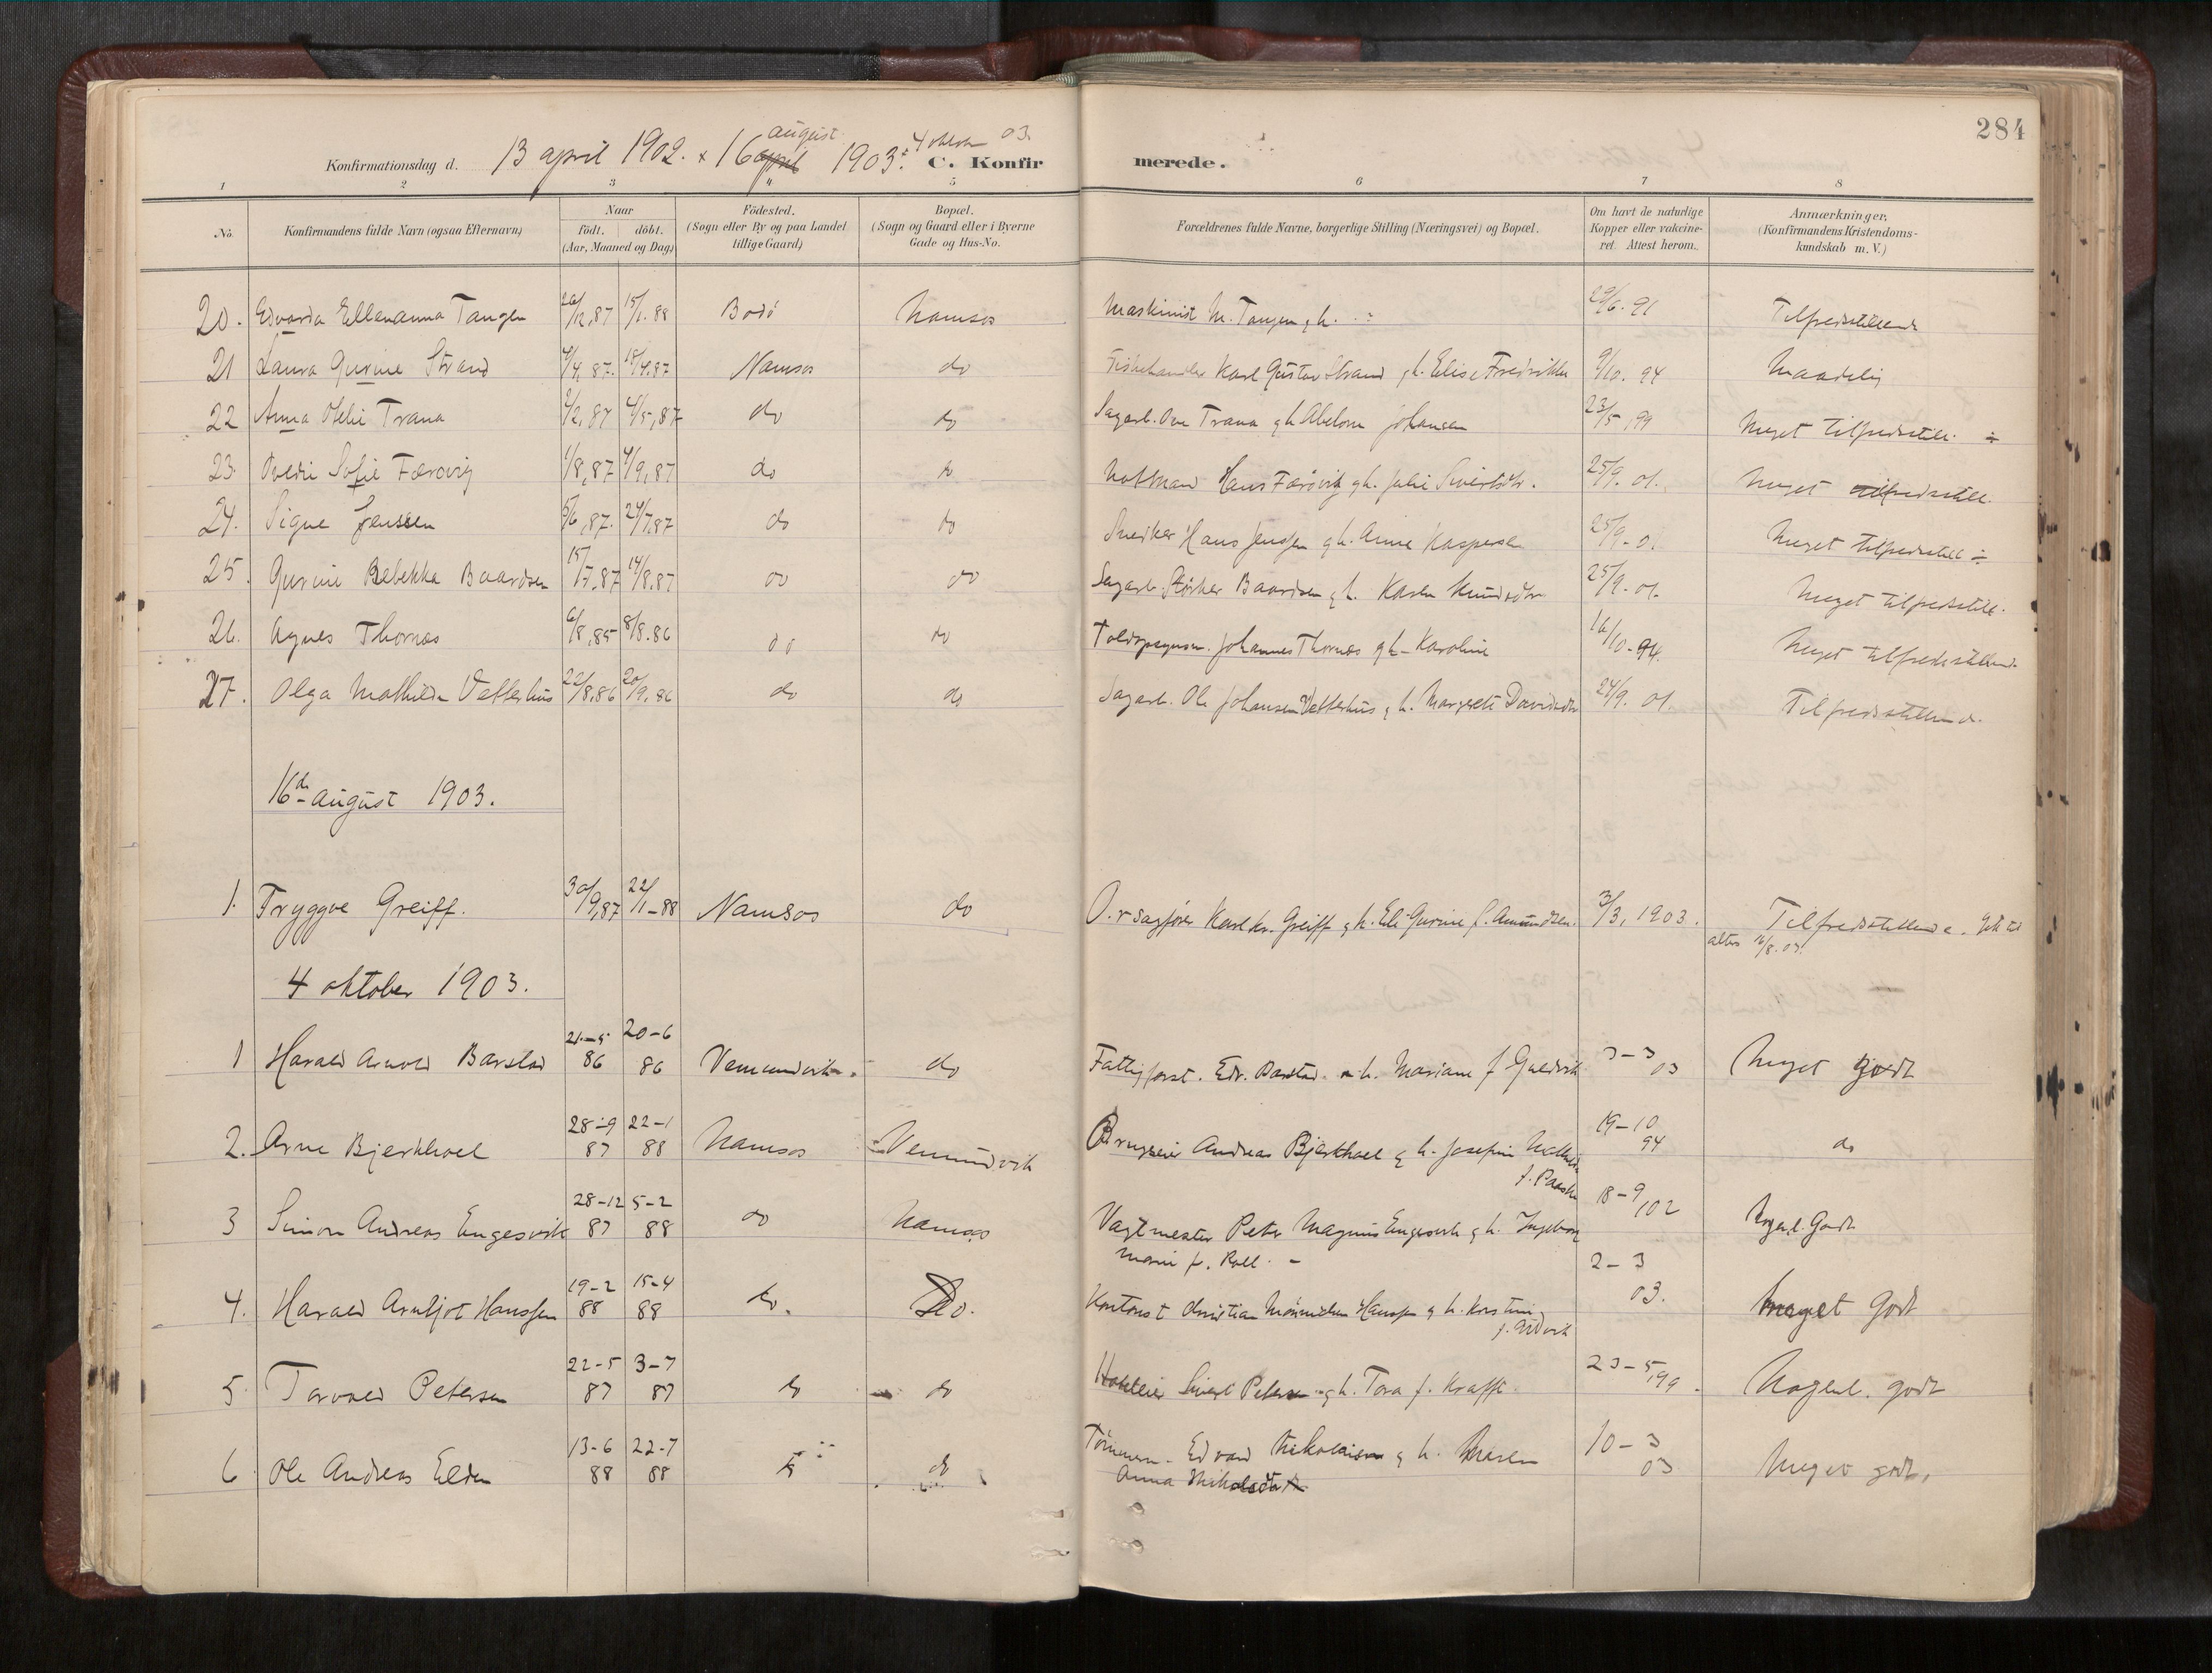 284
Konfirmationsdag d. 13 april 1902. x 16 april august 1903. 4 oktober 03. C. Konfir merede.
1 2 3 4 5 6 7 8
No.
Konfirmandens fulde Navn (ogsaa Efternavn)
Naar
födt. döbt.
(Aar, Maaned og Dag)
Födested.
(Sogn eller By og paa Landet
tillige Gaard)
Bopæl.
(Sogn og Gaard eller i Byerne
Gade og Hus-No.
Forældrenes fulde Navne, borgerlige Stilling (Næringsvei) og Bopæl.
Om havt de naturlige
Kopper eller vakcine-
ret. Attest herom.
Anmærkninger.
(Konfirmandens Kristendoms-
kundskab m. V.)
20. Edvarda Ellenanna Tangen 26/12,87 15/1.88 Bodö Namsos Maskinist M. Tangen g h. 29/6.91 Tilfredsstillende
21 Laura Gurine Strand 4/4, 87. 15/4.87 Namsos do Fiskehandler Karl Gustav Strand g h. Elise Fredrikke 9/10. 94 Maadelig
22 Anna Otelie Trana 2/2,87 4/5,87 do do Sagarb. Ove Trana g h Abelone Johansen 23/5,99 Meget tilfredsstill. ÷
23. Sofie Færövig 1/8,87 4/9,87 do do Notmand Hans Færövig g h. Julie Sivertsdtr. 25/9. 01. Meget tilfredsstill.
24. Signe Jenssen 5/6,87. 24/7.87 do do Snedker Hans Jenssen g h. Anne Kaspersen 25/9-01 Meget tilfredsstill ÷
25. Gurine Rebekka Baardsen 15/7.87 14/8.87 do do Sagarb. Störker Baardsen g h. Karen 25/9-01. Meget tilfredsstill.
26. Agnes Thornæs 6/8,85 8/8.86 do do Toldopsynsm. Johannes Thornæs g h- Karoline 16/10-94. Meget tilfredsstillende
27. Olga Mathilde Vetterhus 22/8,86 20/9.86 do do Sagarb. Ole Johansen Vetterhus g h. Margrete Davidsdtr 24/9. 01. Tilfredsstillende.
16de august 1903.
1. Tryggve Greiff. 30/9,87 22/1-88 Namsos do O.r sagförer Karl Kr. Greiff g h. Eli Gurine f. Amundsen. 3/3, 1903. Tilfredsstillende. Gik til
alters 16/8.03.
4 oktober 1903.
1 Harald Arnold Barstad 21-5 86 20-6 86 Vemundvik. do Fattigforst. Edv. Barstad h. Mariane f 3-3 03 Meget godt
2. Arne Bjerkhoel 28-9 87 22-1 88 Namsos Vemundvik Brugseier Andreas Bjerkhoel g h. Josefine
f. Paaske 19-10 94 do
3 Simon Andreas Engesvik 28-12 87 5-2 88 do Namsos Vagtmester Peter Magnus Engesvik g h. Ingeborg
Marie f. Roll. - 18-9/02 Nogenl. Godt
4. Harald Arnljot Hanssen 19-2 88 15-4 88 do. Do. Kontorist Christian Hanssen g h. Kirstine
2-3 03. Meget godt
5. Torvald Petersen 22-5 87 3-7 87 do do Hoteleier Sivert Petersen g h. Tora f. Krafft. 23-5,99. Nogenl. godt
6. Ole Andreas Elden 13-6 88 22-7 88 do do Tömmerm. Edvard Nikolaisen g h. Maren
Anna 10-3 03 Meget godt,